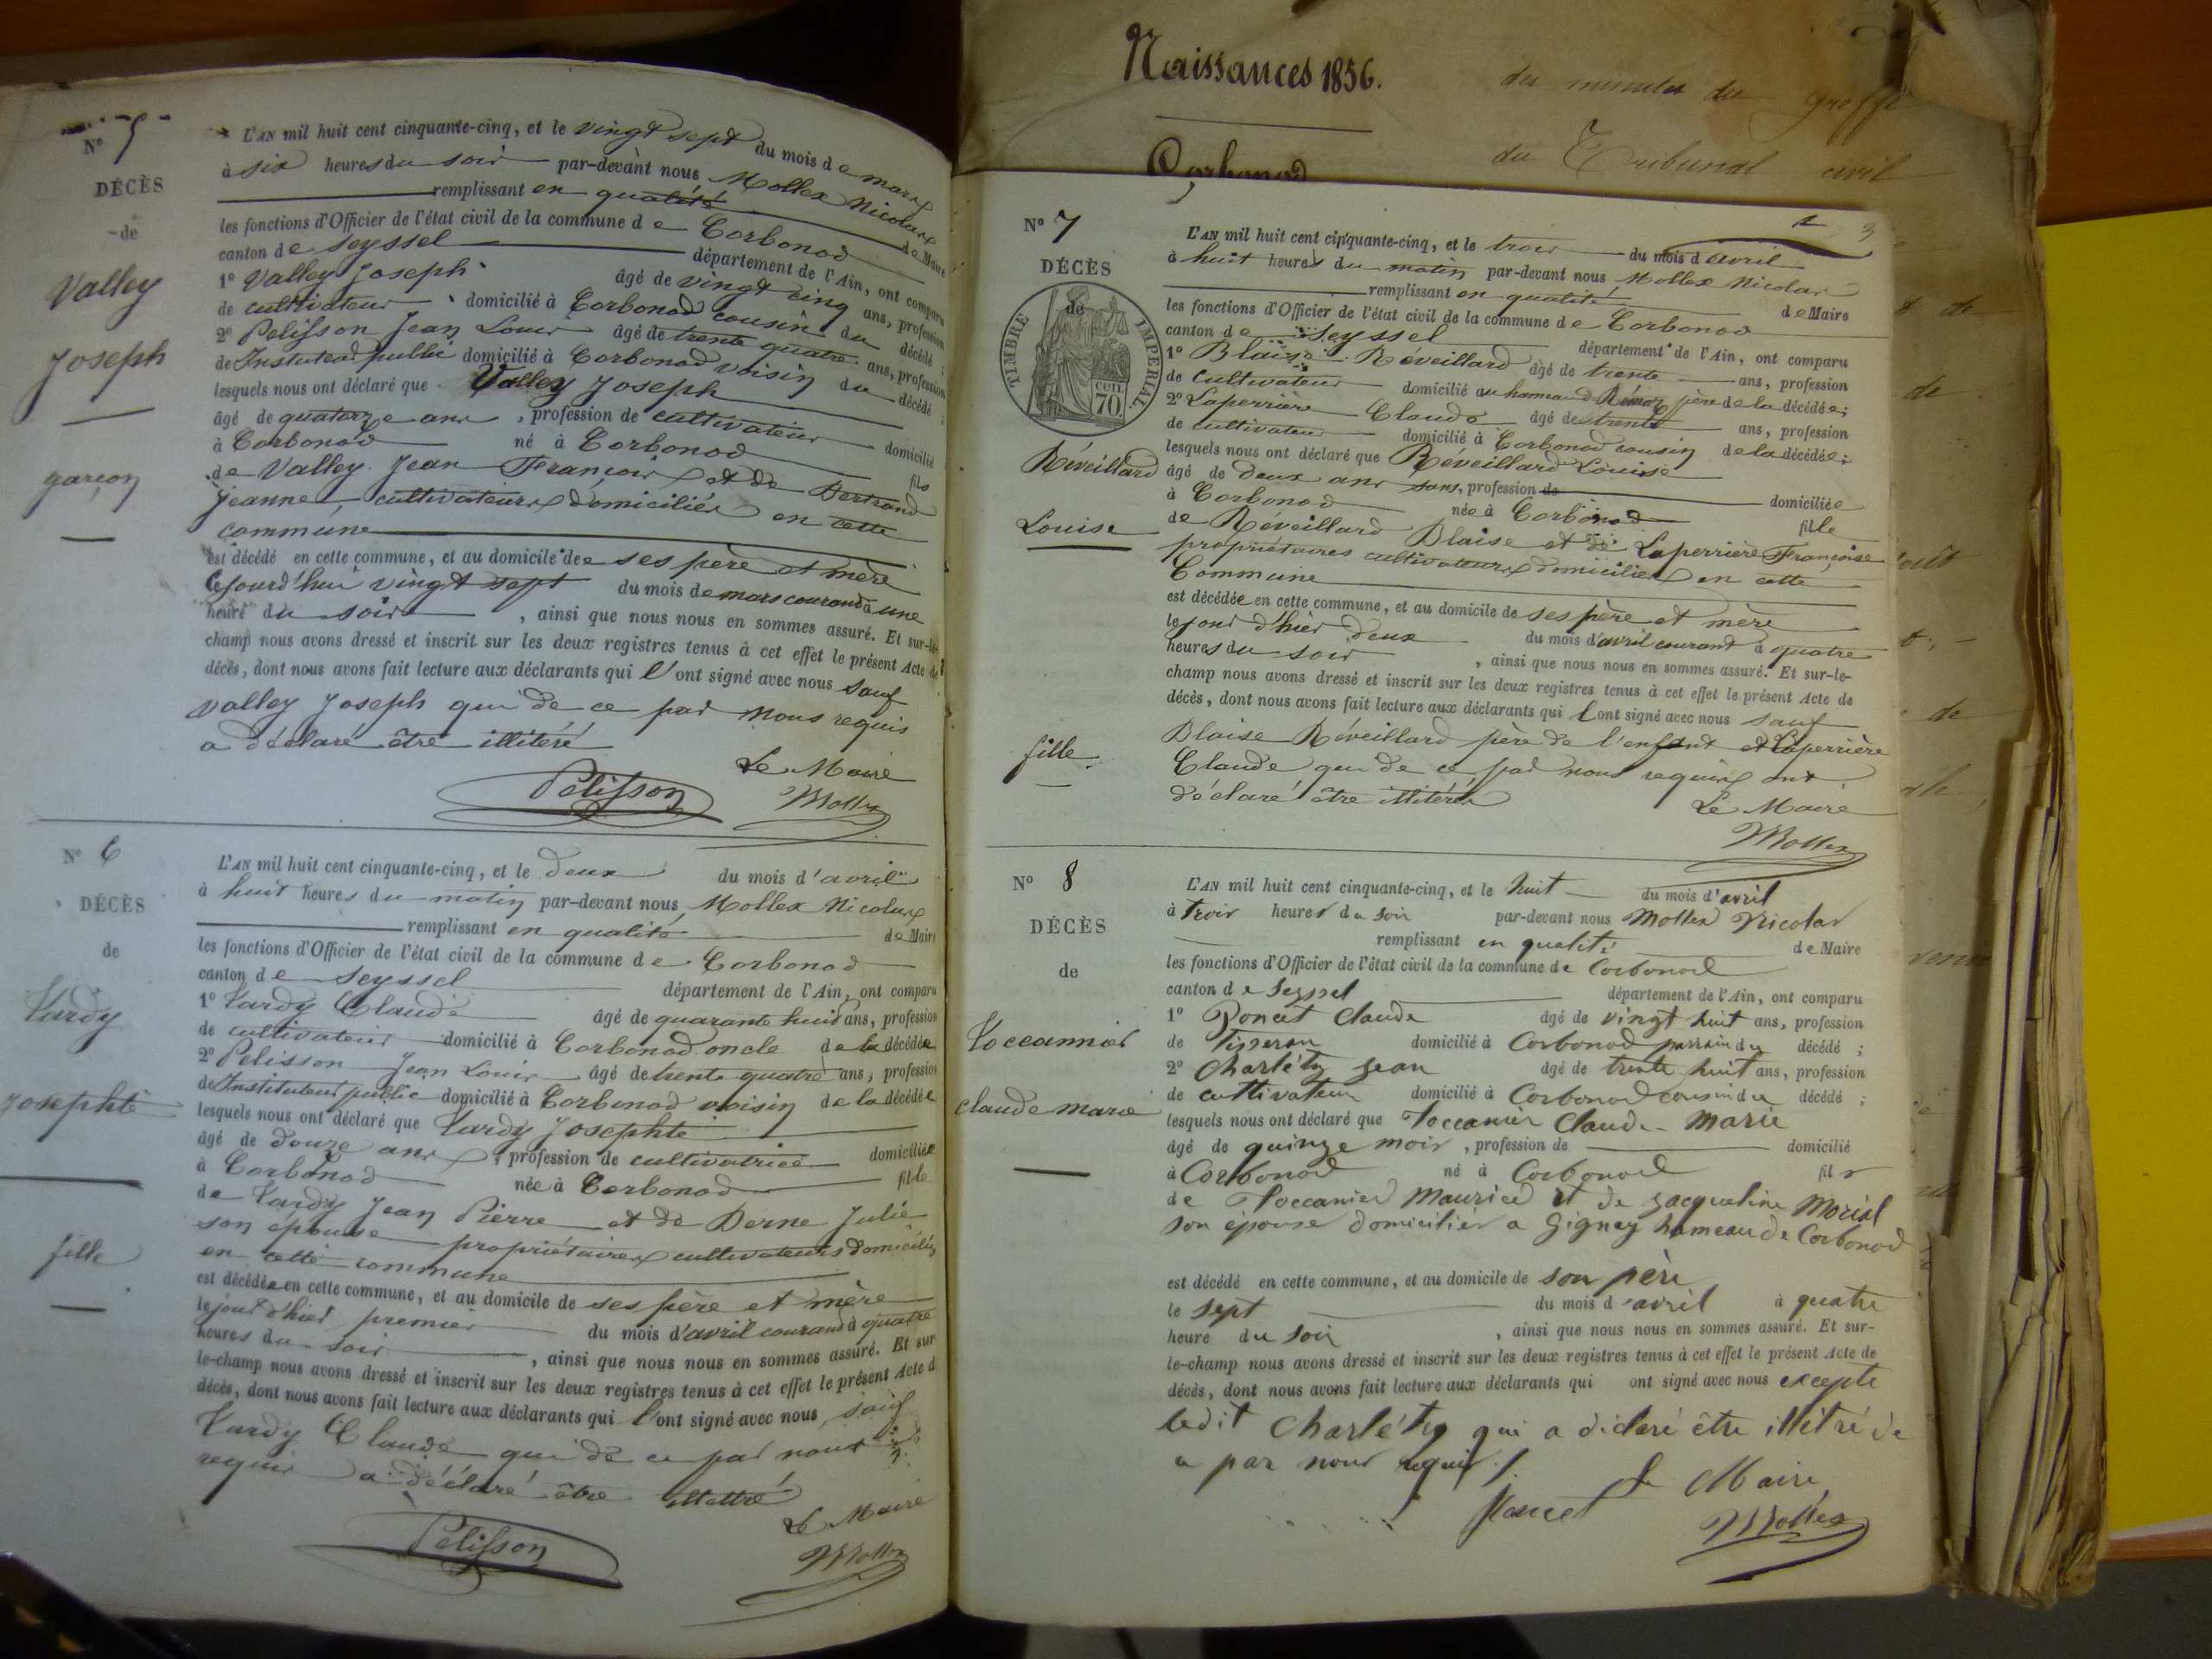 Nº 5
DÉCÈS
de
Valley
Joseph
garçon
L'AN mil huit cent cinquante-cinq, et le vingt sept du mois de mars
à six heures du soir par-devant nous Mollex Nicolas
remplissant en qualité de Maire
les fonctions d'Officier de l'état civil de la commune de Corbonod
canton de Seyssel département de l'Ain, ont comparu
1º Valley Joseph âgé de vingt cinq ans, profession
de cultivateur domicilié à Corbonod cousin du décédé ;
2º Pelisson Jean Louis âgé de trente quatre ans, profession
de Instituteur public domicilié à Corbonod voisin du décédé ;
lesquels nous ont déclaré que Valley Joseph
âgé de quatorze ans, profession de cultivateur domicilié
à Corbonod né à Corbonod fils
de Valley Jean François et de Bertrand
Jeanne, cultivateurs domiciliés en cette
commune
est décédé en cette commune, et au domicile de ses père et mère
Cejourd'hui vingt sept du mois de mars courand à une
heure du soir, ainsi que nous nous en sommes assuré. Et sur-le-
champ nous avons dressé et inscrit sur les deux registres tenus à cet effet le présent Acte de
décès, dont nous avons fait lecture aux déclarants qui l'ont signé avec nous sauf
Valley Joseph qui de ce par nous requis
a déclaré être illitéré
Le Maire
Pelisson Mollex
Nº 6
DÉCÈS
de
Tardy
Josephte
fille
L'AN mil huit cent cinquante-cinq, et le deux du mois d'avril
à huit heures du matin par-devant nous Mollex Nicolas
remplissant en qualité de Maire
les fonctions d'Officier de l'état civil de la commune de Corbonod
canton de Seyssel département de l'Ain, ont comparu
1º Tardy Claude âgé de quarante huit ans, profession
de cultivateur domicilié à Corbonod oncle de la décédée
2º Pelisson Jean Louis âgé de trente quatre ans, profession
de Instituteur public domicilié à Corbonod voisin de la décédée
lesquels nous ont déclaré que Tardy Josephte
âgé de douze ans, profession de cultivatrice domiciliée
à Corbonod née à Corbonod fille
de Tardy Jean Pierre et de Berne Julie
son épouse propriétaires cultivateurs domiciliés
en cette commune
est décédée en cette commune, et au domicile de ses père et mère
le jour d'hier premier du mois d'avril courand à quatre
heures du soir, ainsi que nous nous en sommes assuré. Et sur
le-champ nous avons dressé et inscrit sur les deux registres tenus à cet effet le présent Acte d
décès, dont nous avons fait lecture aux déclarants qui l'ont signé avec nous, sauf
Tardy Claude qui de ce par nous
requis a déclaré être illettré
Le Maire
Pelisson Mollex
Naissances 1856.
Corbonod
des minutes du greffe
du Tribunal civil
Nº 7
DÉCÈS
de
TIMBRE IMPERIAL.
CEN. 70.
Réveillard
Louise
fille
3
L'AN mil huit cent cinquante-cinq, et le trois du mois d'avril
à huit heures du matin par-devant nous Mollex Nicolas
remplissant en qualité de Maire
les fonctions d'Officier de l'état civil de la commune de Corbonod
canton de Seyssel département de l'Ain, ont comparu
1º Blaise Réveillard âgé de trente ans, profession
de cultivateur domicilié au hameau d père de la décédée ;
2º Laperrière Claude âgé de trente ans, profession
de cultivateur domicilié à Corbonod cousin de la décédée ;
lesquels nous ont déclaré que Réveillard Louise
âgé de deux ans sans, profession de domiciliée
à Corbonod née à Corbonod fille
de Réveillard Blaise et de Laperrière Françoise
propriétaires cultivateurs domiciliés en cette
Commune
est décédée en cette commune, et au domicile de ses père et mère
le jour d'hier deux du mois d'avril courand à quatre
heures du soir, ainsi que nous nous en sommes assuré. Et sur-le-
champ nous avons dressé et inscrit sur les deux registres tenus à cet effet le présent Acte de
décès, dont nous avons fait lecture aux déclarants qui l'ont signé avec nous sauf
Blaise Réveillard père de l'enfant et Laperrière
Claude qui de ce par nous requis ont
déclaré être illitérés
Le Maire
Mollex
Nº 8
DÉCÈS
de
Toccannier
Claude marie
L'AN mil huit cent cinquante-cinq, et le huit du mois d'avril
à trois heures du soir par-devant nous Mollex Nicolas
remplissant en qualité de Maire
les fonctions d'Officier de l'état civil de la commune de Corbonod
canton de Seyssel département de l'Ain, ont comparu
1º Poncet Claude âgé de vingt huit ans, profession
de Tisseran domicilié à Corbonod parrain du décédé ;
2º Charléty Jean âgé de trente huit ans, profession
de cultivateur domicilié à Corbonod cousin du décédé ;
lesquels nous ont déclaré que Toccanier Claude Marie
âgé de quinze mois, profession de domicilié
à Corbonod né à Corbonod fils
de Toccanier Maurice et de Jacqueline Morial
son épouse domiciliés a Gignez hameau de Corbonod
est décédé en cette commune, et au domicile de son père
le sept du mois d'avril à quatre
heure du soir, ainsi que nous nous en sommes assuré. Et sur-
le-champ nous avons dressé et inscrit sur les deux registres tenus à cet effet le présent Acte de
décès, dont nous avons fait lecture aux déclarants qui ont signé avec nous excepte
ledit Charléty qui a déclaré être illétré de
ce par nous requis ./.
Le Maire
Poncet Mollex